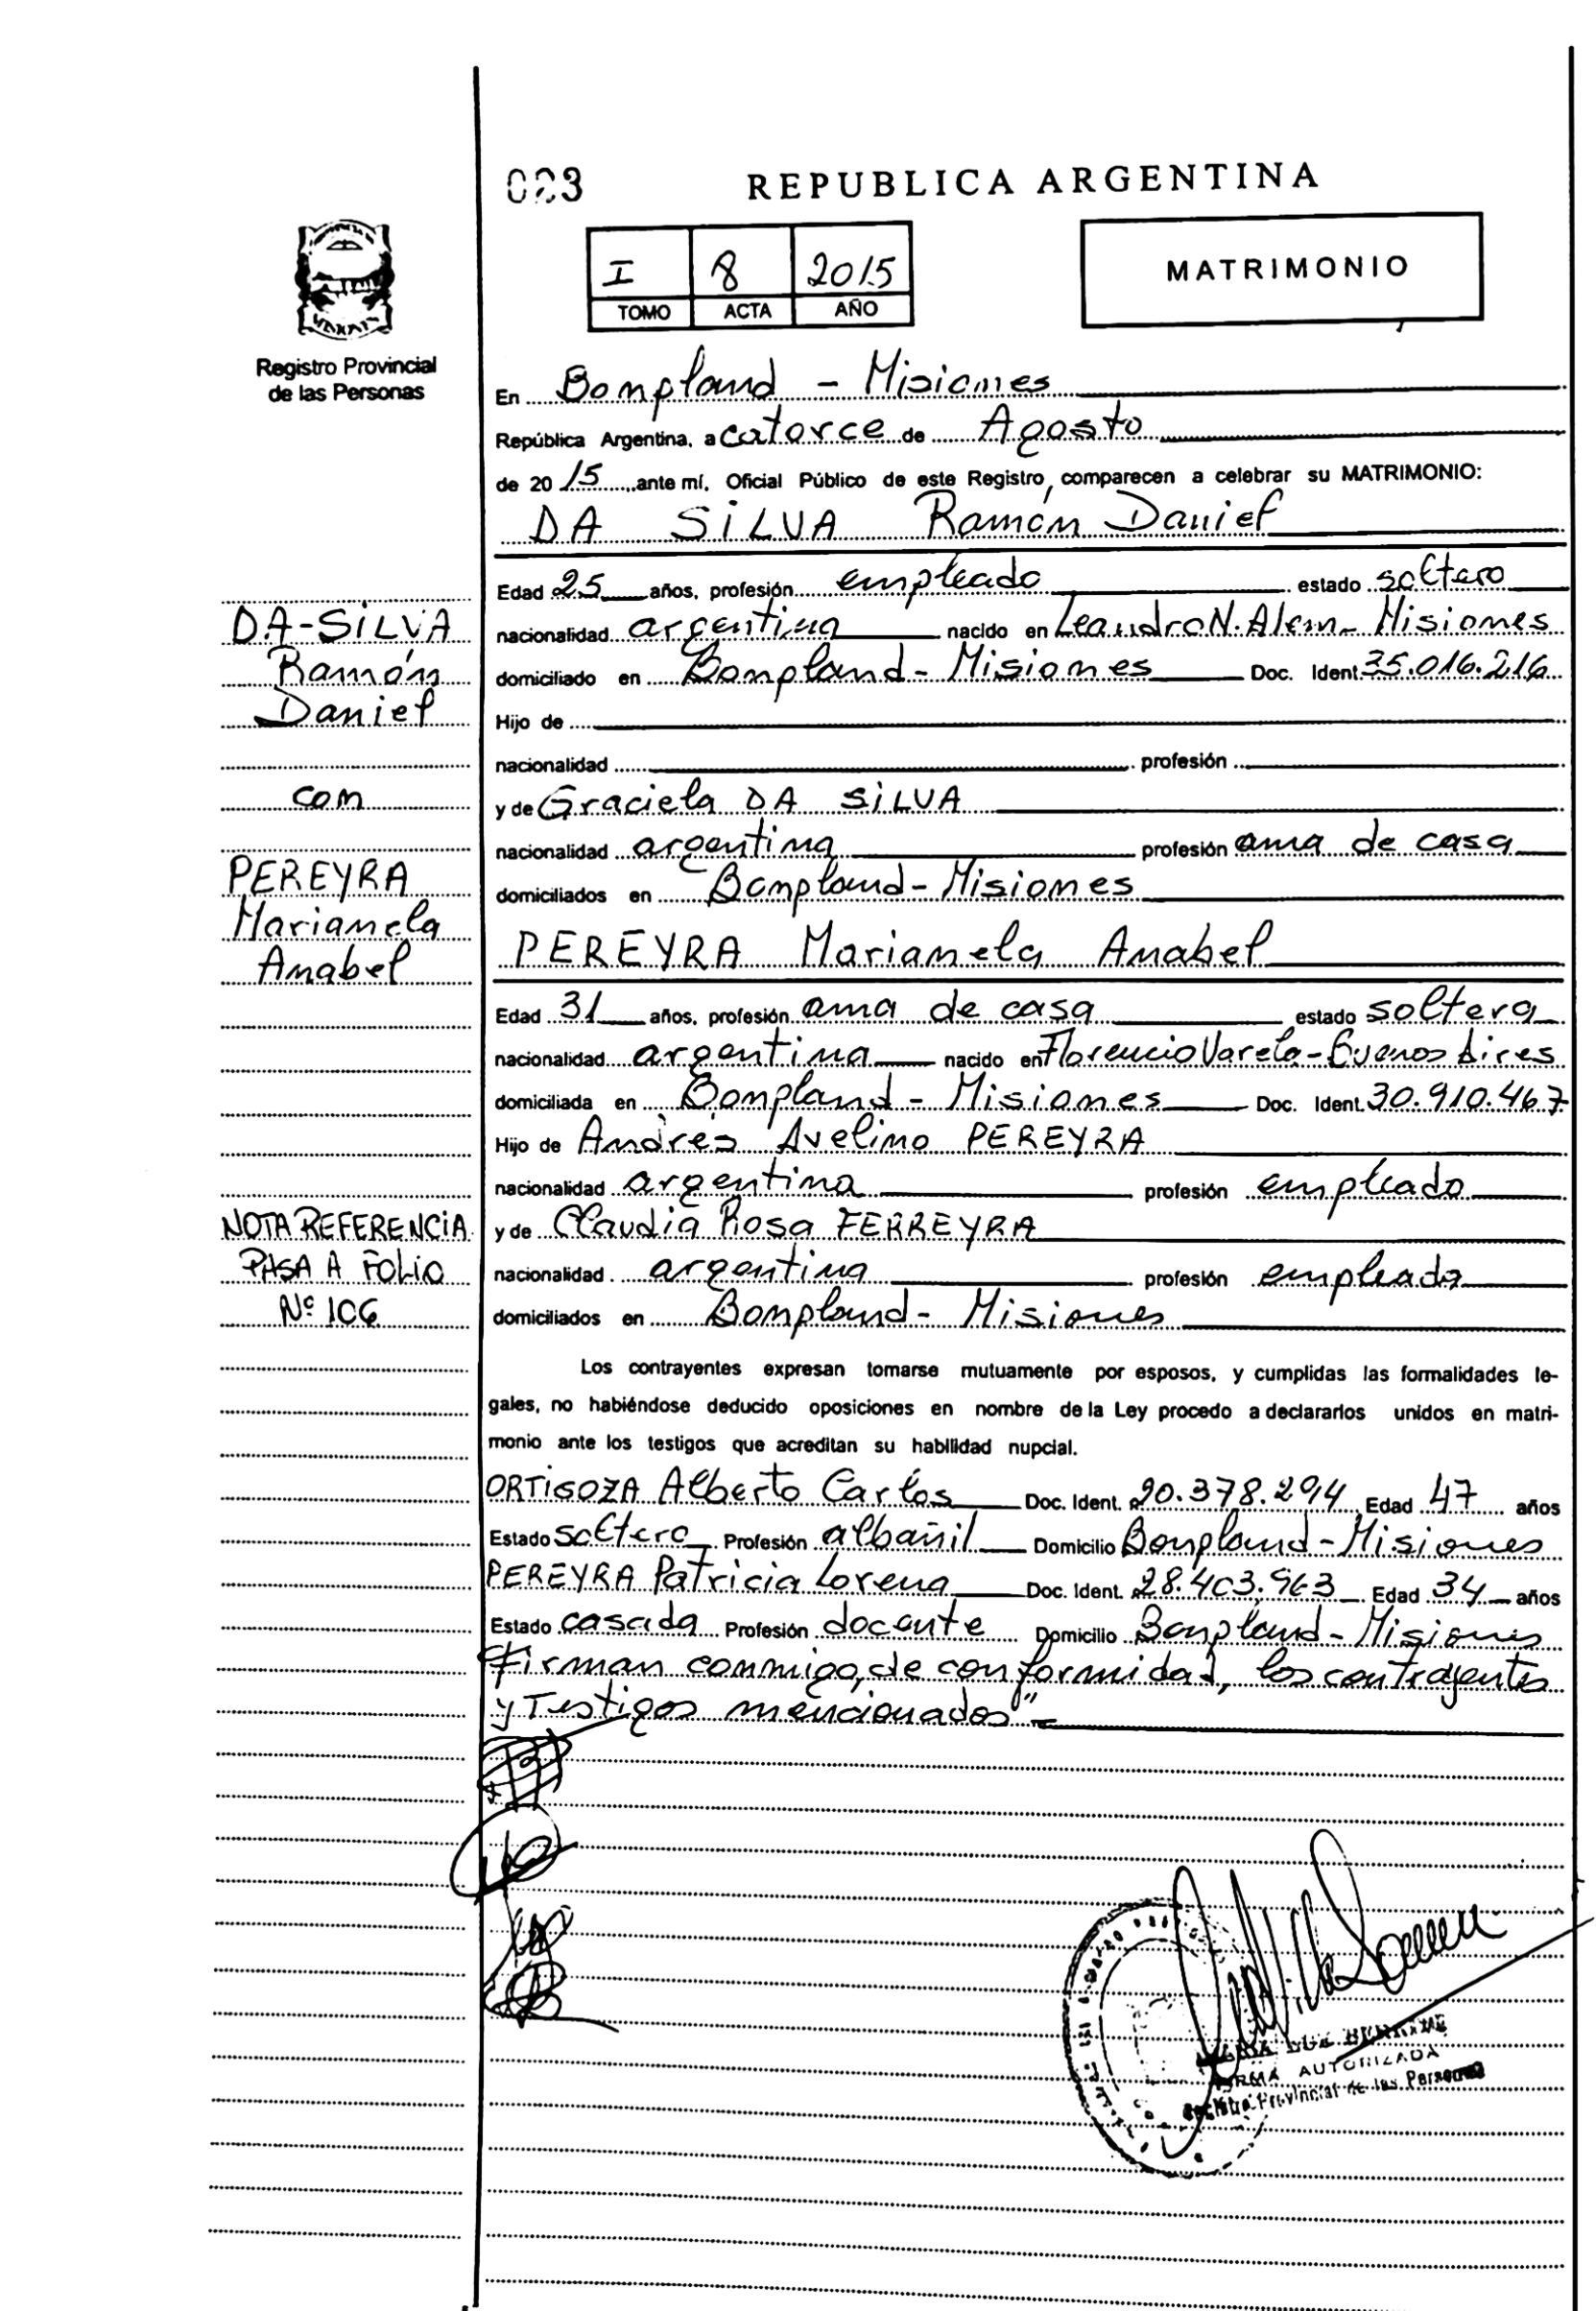 023
REPUBLICA ARGENTINA
I 8 2015
TOMO ACTA AÑO
MATRIMONIO
Registro Provincial
de las Personas
En Bonpland - Misiones
República Argentina, a catorce de Agosto
de 2015 ante mí, Oficial Público de este Registro, comparecen a celebrar su MATRIMONIO:
DA SILVA Ramón Daniel
Edad 25 años, profesión empleado estado soltero
nacionalidad argentina nacido en Leandro N. Alem - Misiones
domiciliado en Bonpland - Misiones Doc. Ident. 35.016.216
Hijo de
nacionalidad profesión
y de Graciela DA SILVA
nacionalidad argentina profesión ama de casa
domiciliados en Bonpland - Misiones
PEREYRA Marianela Anabel
Edad 31 años, profesión ama de casa estado soltera
nacionalidad argentina nacido en Florencio Varela - Buenos Aires
domiciliada en Bonpland - Misiones Doc. Ident. 30.910.467
Hijo de Andrés Avelino PEREYRA
nacionalidad argentina profesión empleado
y de Claudia Rosa FERREYRA
nacionalidad argentina profesión empleada
domiciliados en Bonpland - Misiones
Los contrayentes expresan tomarse mutuamente por esposos, y cumplidas las formalidades le-
gales, no habiéndose deducido oposiciones en nombre de la Ley procedo a declararlos unidos en matri-
monio ante los testigos que acreditan su habilidad nupcial.
ORTIGOZA Alberto Carlos Doc. Ident. 20.378.294 Edad 47 años
Estado soltero Profesión albañil Domicilio Bonpland - Misiones
PEREYRA Patricia Lorena Doc. Ident. 28.403.963 Edad 34 años
Estado casada Profesión docente Domicilio Bonpland - Misiones
Firman conmigo, de conformidad, los contrayentes
y Testigos mencionados" -
DA-SILVA
Ramón
Daniel
con
PEREYRA
Marianela
Anabel
NOTA REFERENCIA
PASA A FOLIO
Nº 106
FIRMA AUTORIZADA
Registro Provincial de las Personas